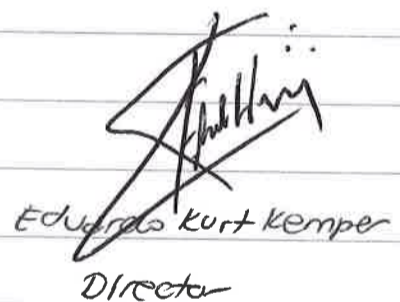 Eduardo Kurt Kemper
Director